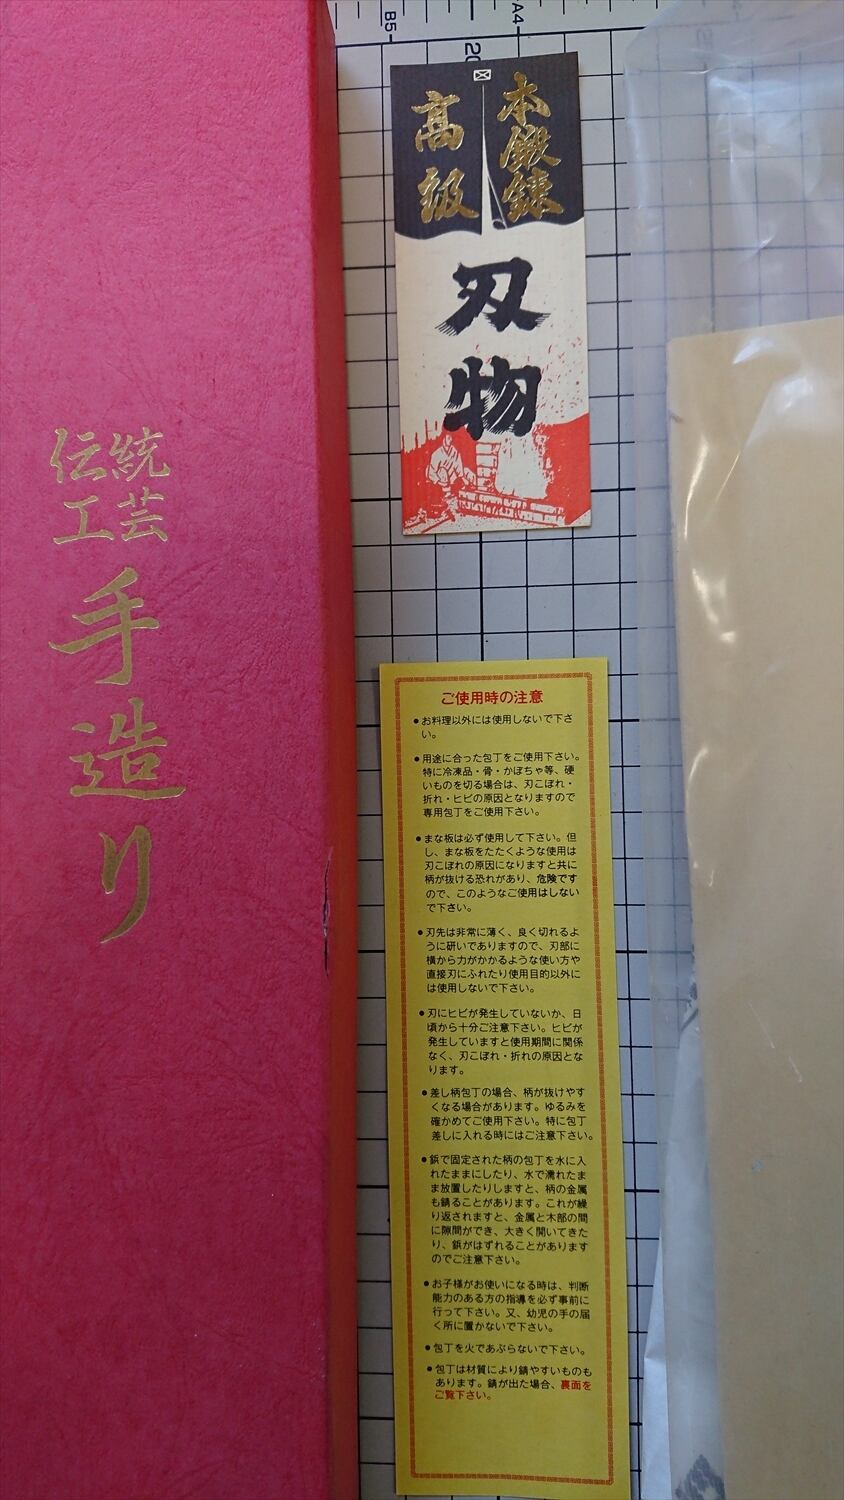 B5
A4
20
本鍛錬
高級
刃物
伝統
工芸
手造り
ご使用時の注意
●お料理以外には使用しないで下さ
い。
●用途に合った包丁をご使用下さい。
特に冷凍品・骨・かぼちゃ等、硬
いものを切る場合は、刃こぼれ・
折れ・ヒビの原因となりますので
専用包丁をご使用下さい。
●まな板は必ず使用して下さい。但
し、まな板をたたくような使用は
刃こぼれの原因になりますと共に
柄が抜ける恐れがあり、危険です
ので、このようなご使用はしない
で下さい。
●刃先は非常に薄く、良く切れるよ
うに研いでありますので、刃部に
横から力がかかるような使い方や
直接刃にふれたり使用目的以外に
は使用しないで下さい。
●刃にヒビが発生していないか、日
頃から十分ご注意下さい。ヒビが
発生していますと使用期間に関係
なく、刃こぼれ・折れの原因とな
ります。
●差し柄包丁の場合、柄が抜けやす
くなる場合があります。ゆるみを
確かめてご使用下さい。特に包丁
差しに入れる時にはご注意下さい。
●鋲で固定された柄の包丁を水に入
れたままにしたり、水で濡れたま
ま放置したりしますと、柄の金属
も錆ることがあります。これが繰
り返されますと、金属と木部の間
に隙間ができ、大きく開いてきた
り、鋲がはずれることがあります
のでご注意下さい。
●お子様がお使いになる時は、判断
能力のある方の指導を必ず事前に
行って下さい。又、幼児の手の届
く所に置かないで下さい。
●包丁を火であぶらないで下さい。
●包丁は材質により錆やすいものも
あります。錆が出た場合、裏面を
ご覧下さい。